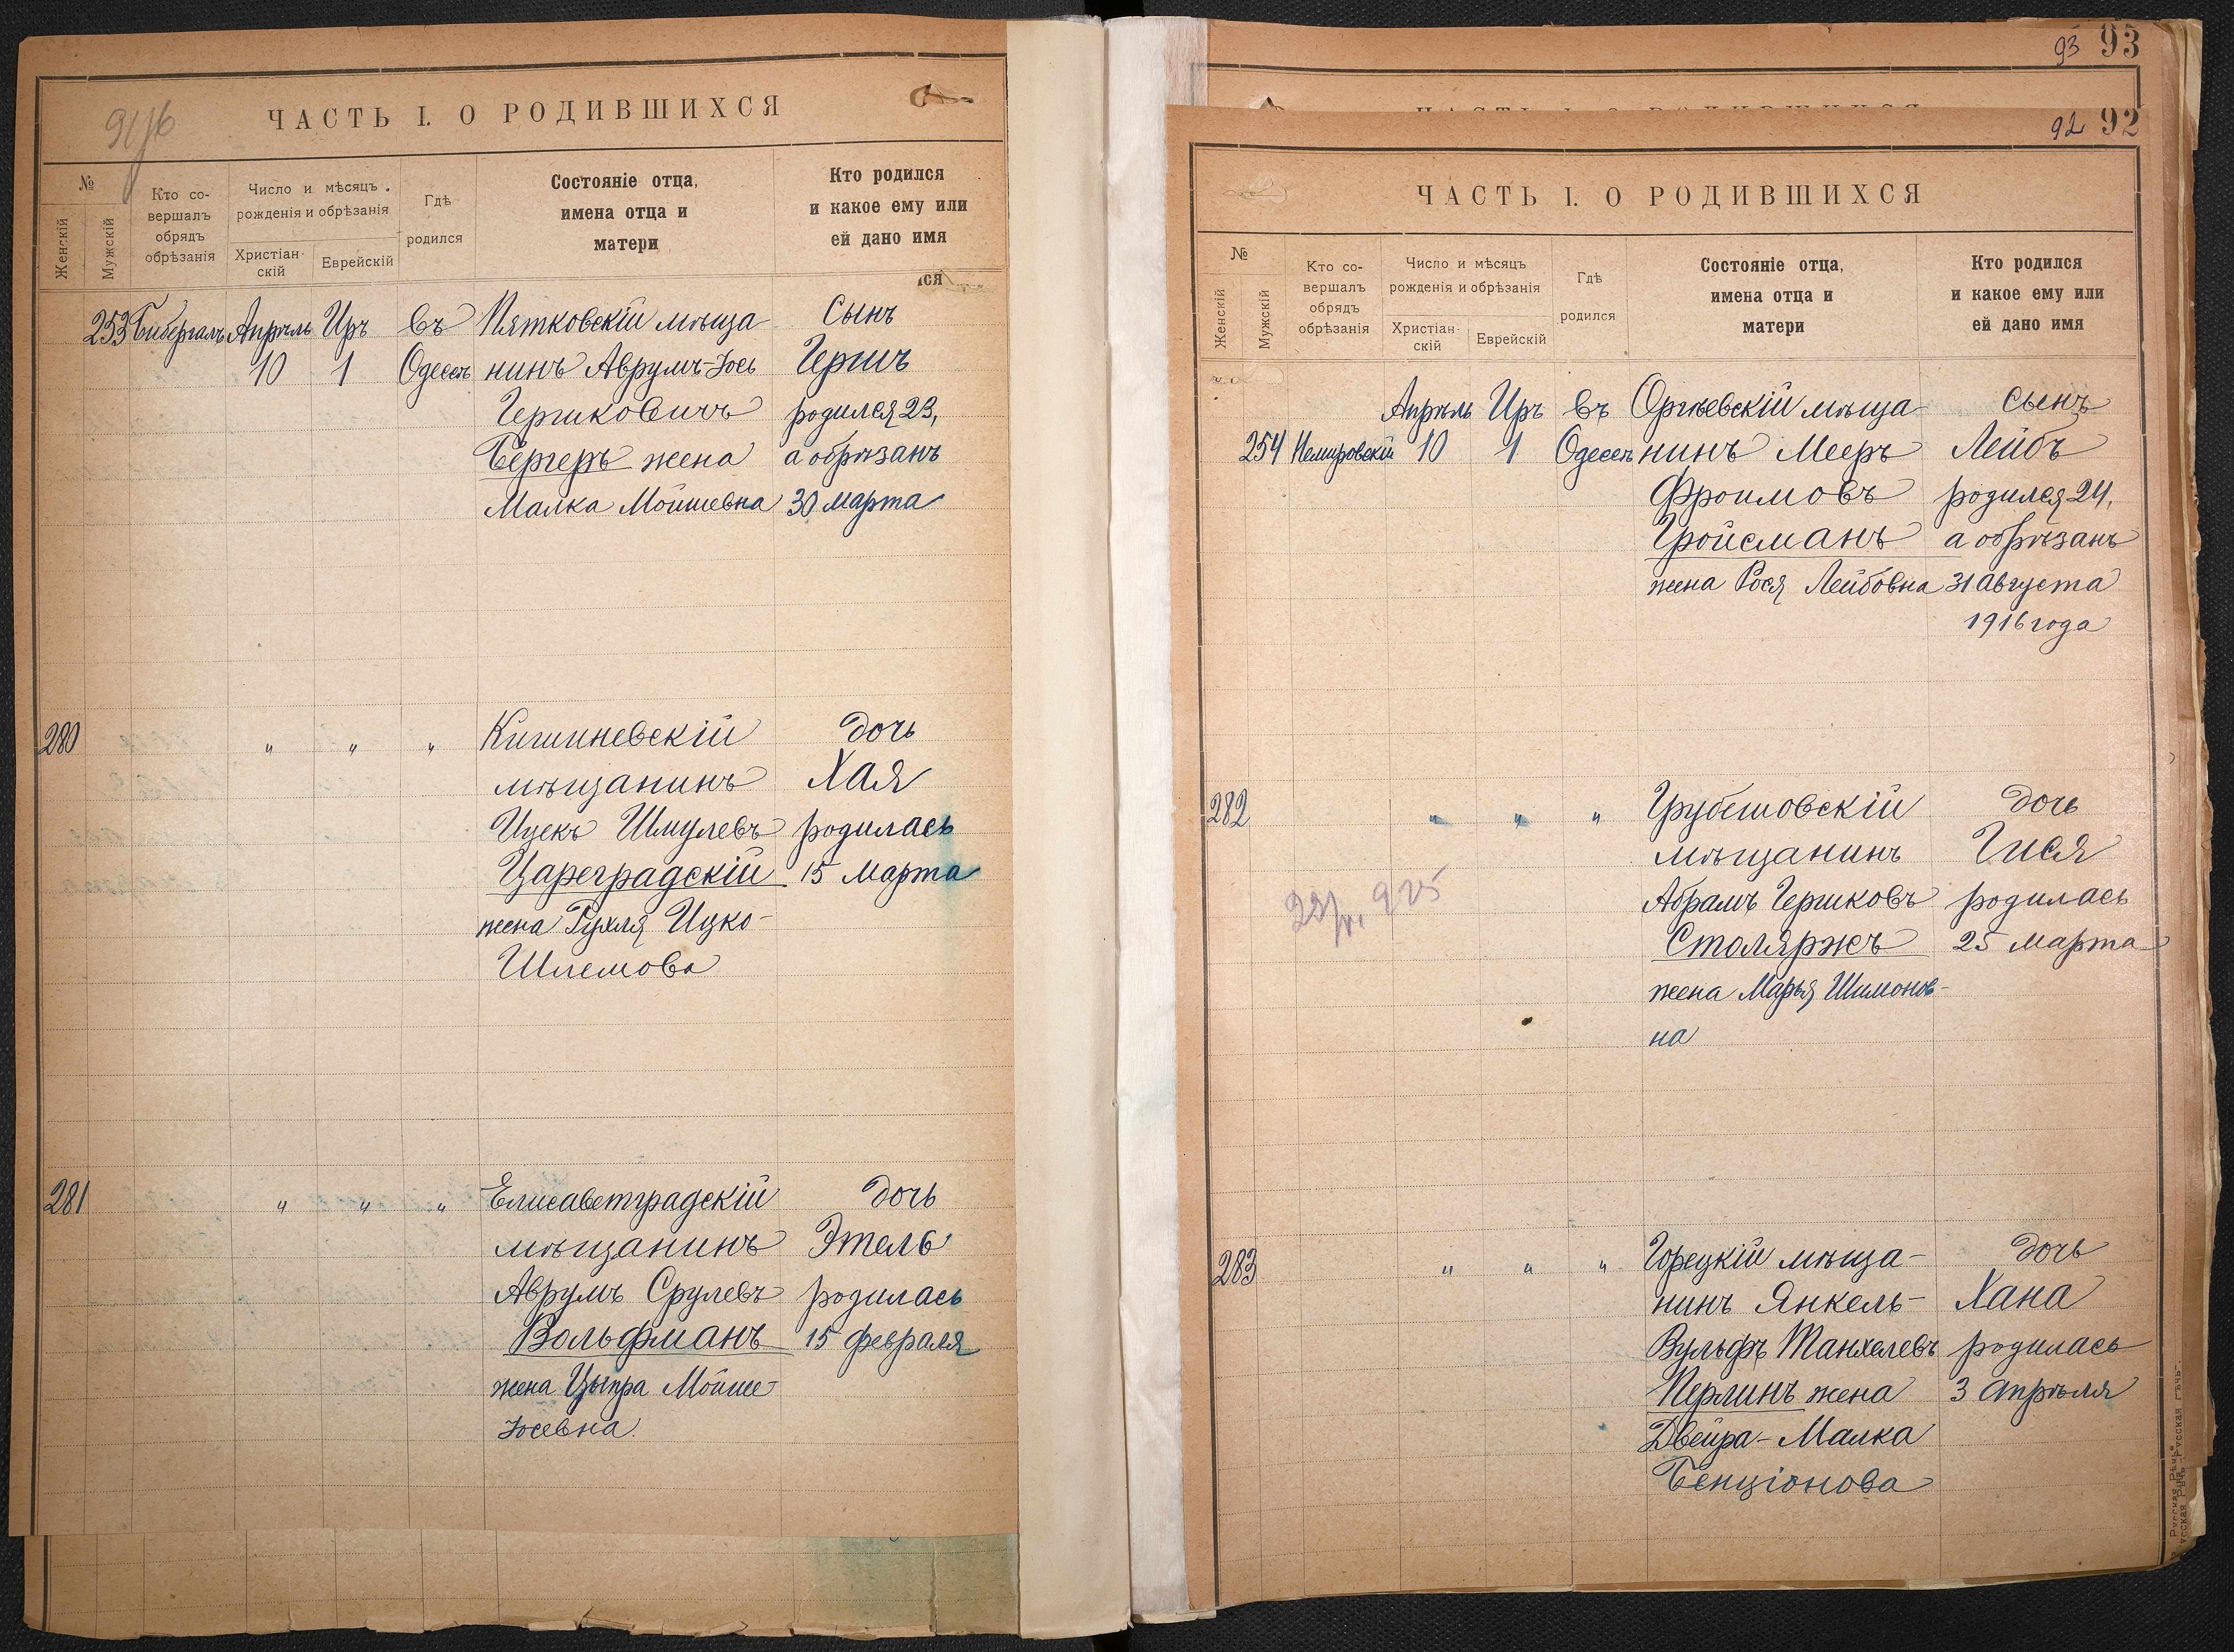 ЧАСТЬ I. О РОДИВШИХСЯ
№
Женскій
Мужскій
Кто со-
вершалъ
обрядъ
обрѣзанія
Число и мѣсяцъ
рожденія и обрѣзанія
Христіан-
скій
Еврейскій
Гдѣ
родился
Состояніе отца,
имена отца и
матери
Кто родился
и какое ему или
ей дано имя
ся
253 Бибергалъ Апрѣль Иръ въ Пятковскій мѣща- Сынъ
10 1 Одессѣ нинъ Аврумъ-Іось Гершъ
Гершковичъ родился 23,
Бергеръ жена а обрѣзанъ
Малка Мойшевна 30 марта
280 " " " Кишиневскій дочь
мѣщанинъ Хая
Ицекъ Шмулевъ родилась
Цареградскій 15 Марта
жена Рухля Ицко-
Шлемова
281 " " " Елисаветградскій дочь
мѣщанинъ Этель
Аврумъ Срулевъ родилась
Вольфманъ 15 февраля
жена Цыпра Мойше-
Іосевна.
93 93
92 92
ЧАСТЬ I. О РОДИВШИХСЯ
№
Женскій
Мужскій
Кто со-
вершалъ
обрядъ
обрѣзанія
Число и мѣсяцъ
рожденія и обрѣзанія
Христіан-
скій
Еврейскій
Гдѣ
родился
Состояніе отца,
имена отца и
матери
Кто родился
и какое ему или
ей дано имя
Апрѣль Иръ въ Оргѣевскій мѣща- сынъ
254 Немировскій 10 1 Одессѣ нинъ Мееръ Лейбъ
Фроимовъ родился 24,
Гройсманъ а обрѣзанъ
жена Рося Лейбовна 31 Августа
1916 года
282 " " " Грубешовскій дочь
мѣщанинъ Гися
Абрамъ Гершковъ родилась
Столяржъ 25 марта
жена Марья Шимонов-
на
283 " " " Горецкій мѣща- дочь
нинъ Янкель- Хана
Вульфъ Танхелевъ родилась
Перлинъ жена 3 апрѣля
Двейра-Малка
Бенціонова